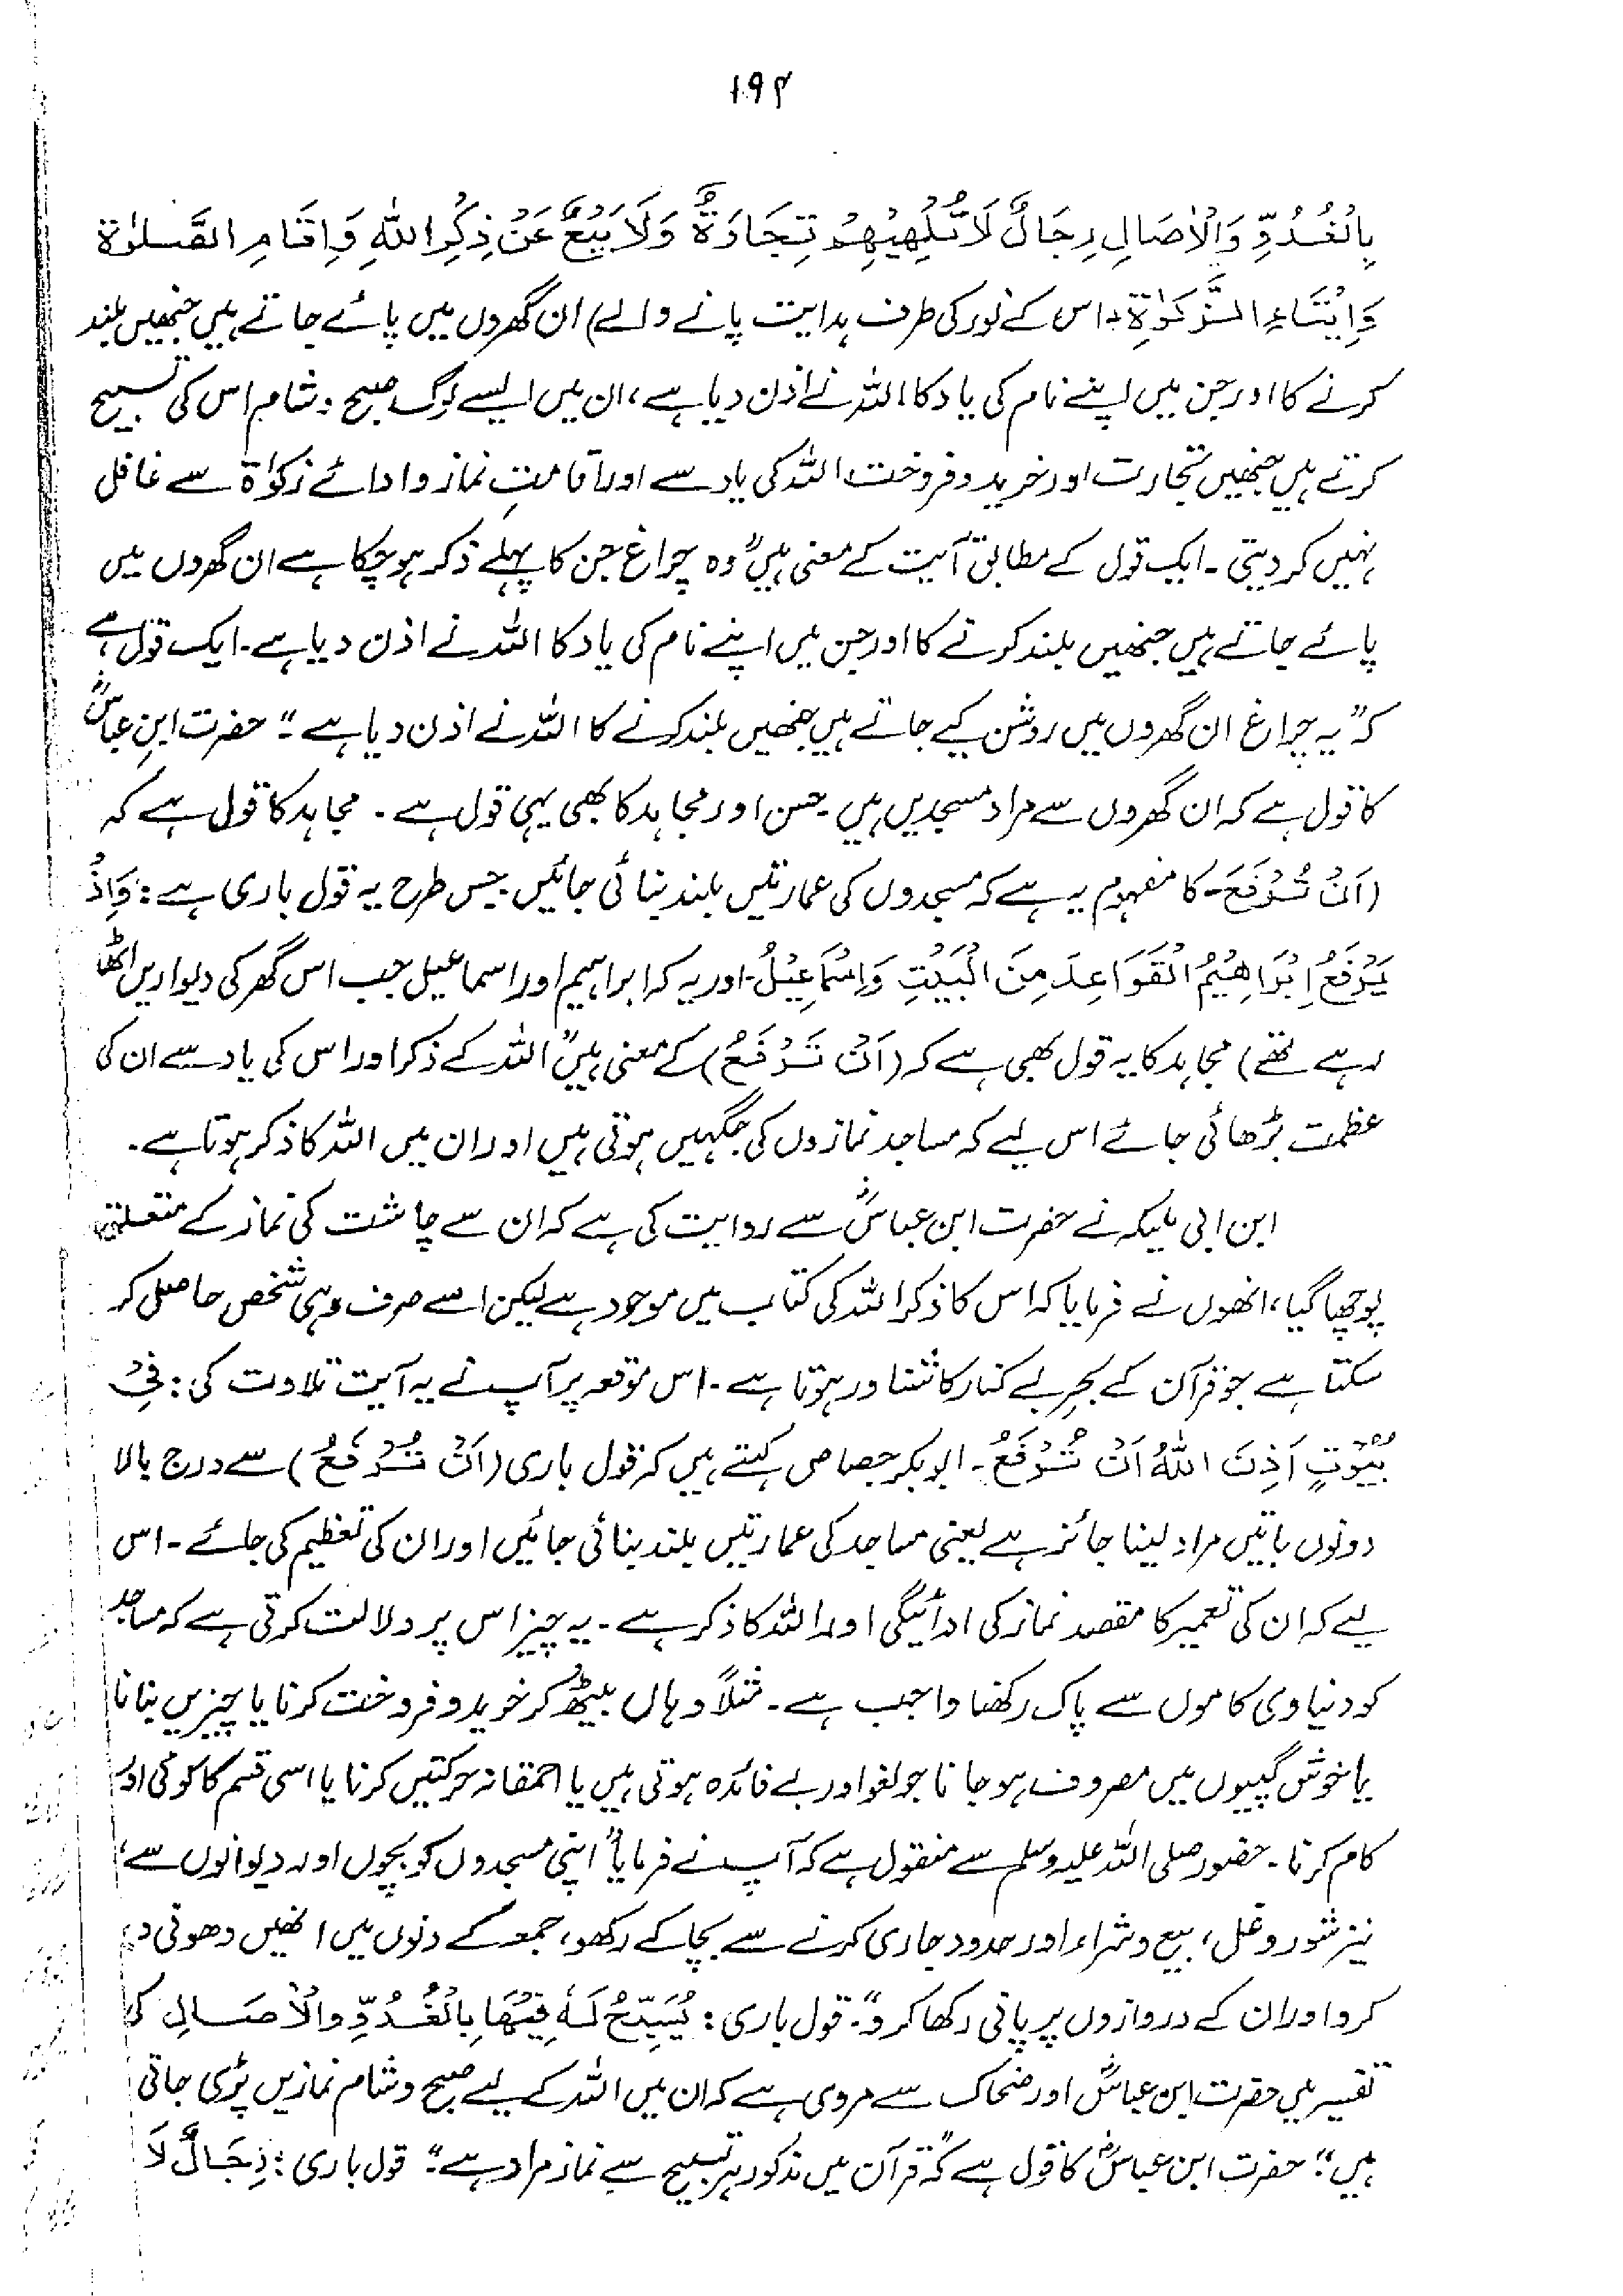 ۱۹۴
بِالْغُدُوِّ وَالْاٰصَالِ رِجَالٌ لَّا تُلْهِيْهِمْ تِجَارَةٌ وَّلَا بَيْعٌ عَنْ ذِكْرِ اللّٰهِ وَاِقَامِ الصَّلٰوةِ
وَاِيْتَاءِ الزَّكٰوةِ۔ اس کے نور کی طرف ہدایت پانے والے) ان گھروں میں پائے جاتے ہیں جنھیں بلند
کرنے کا اور جن میں اپنے نام کی یاد کا اللہ نے اذن دیا ہے، ان میں ایسے لوگ صبح و شام اس کی تسبیح
کرتے ہیں جنھیں تجارت اور خرید و فروخت اللہ کی یاد سے اور اقامتِ نماز و ادائے زکوٰۃ سے غافل
نہیں کر دیتی۔ ایک قول کے مطابق آیت کے معنی ہیں "وہ چراغ جن کا پہلے ذکر ہو چکا ہے ان گھروں میں
پائے جاتے ہیں جنھیں بلند کرنے کا اور جن میں اپنے نام کی یاد کا اللہ نے اذن دیا ہے۔ ایک قول ہے
کہ "یہ چراغ ان گھروں میں روشن کیے جاتے ہیں جنھیں بلند کرنے کا اللہ نے اذن دیا ہے"۔ حضرت ابنِ عباسؓ
کا قول ہے کہ ان گھروں سے مراد مسجدیں ہیں۔ حسن اور مجاہد کا بھی یہی قول ہے۔ مجاہد کا قول ہے کہ
(اَنْ تُرْفَعَ۔ کا مفہوم یہ ہے کہ مسجدوں کی عمارتیں بلند بنائی جائیں۔ جس طرح یہ قول باری ہے: وَاِذْ
يَرْفَعُ اِبْرَاهِيْمُ الْقَوَاعِدَ مِنَ الْبَيْتِ وَاِسْمَاعِيْلُ۔ اور یہ کہ ابراہیم اور اسماعیل جب اس گھر کی دیواریں اٹھا
رہے تھے) مجاہد کا یہ قول بھی ہے کہ (اَنْ تَرْفَعُ) کے معنی ہیں "اللہ کے ذکر اور اس کی یاد سے ان کی
عظمت بڑھائی جائے اس لیے کہ مساجد نمازوں کی جگہیں ہوتی ہیں اور ان میں اللہ کا ذکر ہوتا ہے۔
ابن ابی ملیکہ نے حضرت ابن عباسؓ سے روایت کی ہے کہ ان سے چاشت کی نماز کے متعلق
پوچھا گیا، انھوں نے فرمایا کہ اس کا ذکر اللہ کی کتاب میں موجود ہے لیکن اسے صرف وہی شخص حاصل کر
سکتا ہے جو قرآن کے بحرِ بے کنار کا شناور ہوتا ہے۔ اس موقعہ پر آپ نے یہ آیت تلاوت کی: فِيْ
بُيُوْتٍ اَذِنَ اللّٰهُ اَنْ تُرْفَعَ۔ ابوبکر جصاص کہتے ہیں کہ قول باری (اَنْ تُرْفَعُ) سے درج بالا
دونوں باتیں مراد لینا جائز ہے یعنی مساجد کی عمارتیں بلند بنائی جائیں اور ان کی تعظیم کی جائے۔ اس
لیے کہ ان کی تعمیر کا مقصد نماز کی ادائیگی اور اللہ کا ذکر ہے۔ یہ چیز اس پر دلالت کرتی ہے کہ مساجد
کو دنیاوی کاموں سے پاک رکھنا واجب ہے۔ مثلاً وہاں بیٹھ کر خرید و فروخت کرنا یا چیزیں بنانا
یا خوش گپیوں میں مصروف ہو جانا جو لغو اور بے فائدہ ہوتی ہیں یا احمقانہ حرکتیں کرنا یا اسی قسم کا کوئی اور
کام کرنا۔ حضور صلی اللہ علیہ وسلم سے منقول ہے کہ آپ نے فرمایا "اپنی مسجدوں کو بچوں اور دیوانوں سے،
نیز شور و غل، بیع و شراء اور حدود جاری کرنے سے بچا کے رکھو، جمعہ کے دنوں میں انھیں دھونی د
کرو اور ان کے دروازوں پر پانی رکھا کرو"۔ قول باری: يُسَبِّحُ لَهٗ فِيْهَا بِالْغُدُوِّ وَالْاٰصَالِ کی
تفسیر میں حضرت ابن عباسؓ اور ضحاک سے مروی ہے کہ ان میں اللہ کے لیے صبح و شام نمازیں پڑی جاتی
ہیں"۔ حضرت ابن عباسؓ کا قول ہے کہ "قرآن میں مذکور ہر تسبیح سے نماز مراد ہے"۔ قول باری: رِجَالٌ لَّا